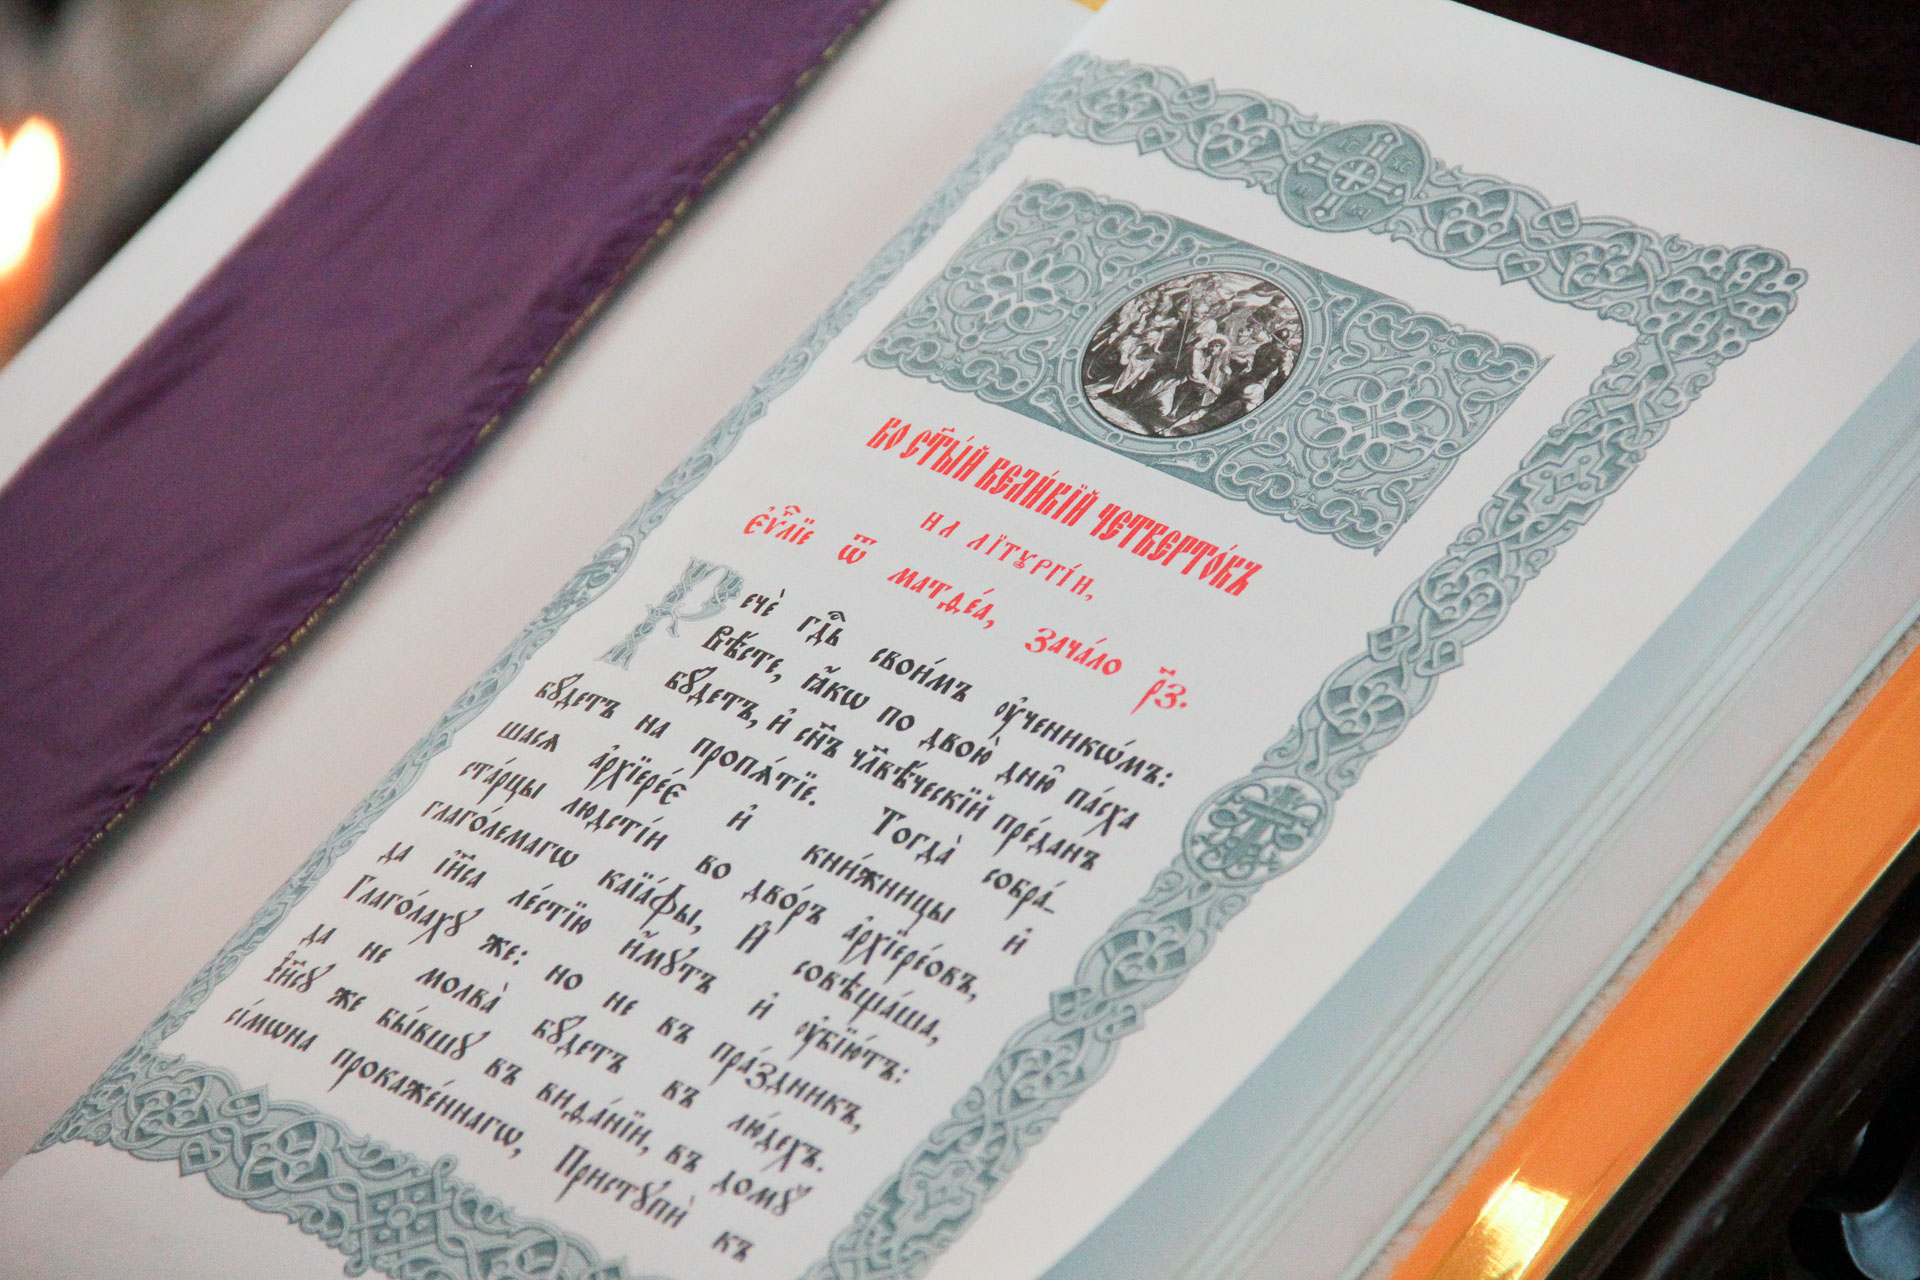 Во ст҃ы́й вели́кїй четверто́къ
на лїтꙋргі́и,
Є҆ѵⷢ҇лїе ѿ матѳе́а, зача́ло р҃з.
Речѐ гдⷭ҇ь свои́мъ ᲂу҆ченикѡ́мъ:
вѣ́сте, ꙗ҆́кѡ по двою̀ дню̑ па́сха
бꙋ́детъ, и҆ сн҃ъ чл҃вѣ́ческїй пре́данъ
бꙋ́детъ на пропѧ́тїе. Тогда̀ собра́-
шасѧ а҆рхїере́є и҆ кни́жницы и҆
ста́рцы людсті́и во дво́ръ а҆рхїере́овъ,
глаго́лемагѡ каїа́фы, И҆ совѣща́ша,
да і҆и҃са ле́стїю и҆́мꙋтъ и҆ ᲂу҆бїю́тъ:
Глаго́лахꙋ же: но не въ пра́здникъ,
да не молва̀ бꙋ́детъ въ лю́дехъ.
І҆и҃сꙋ же бы́вшꙋ въ виѳа́нїи, въ домꙋ̀
сі́мѡна прокаже́ннагѡ, Пристꙋпѝ къ